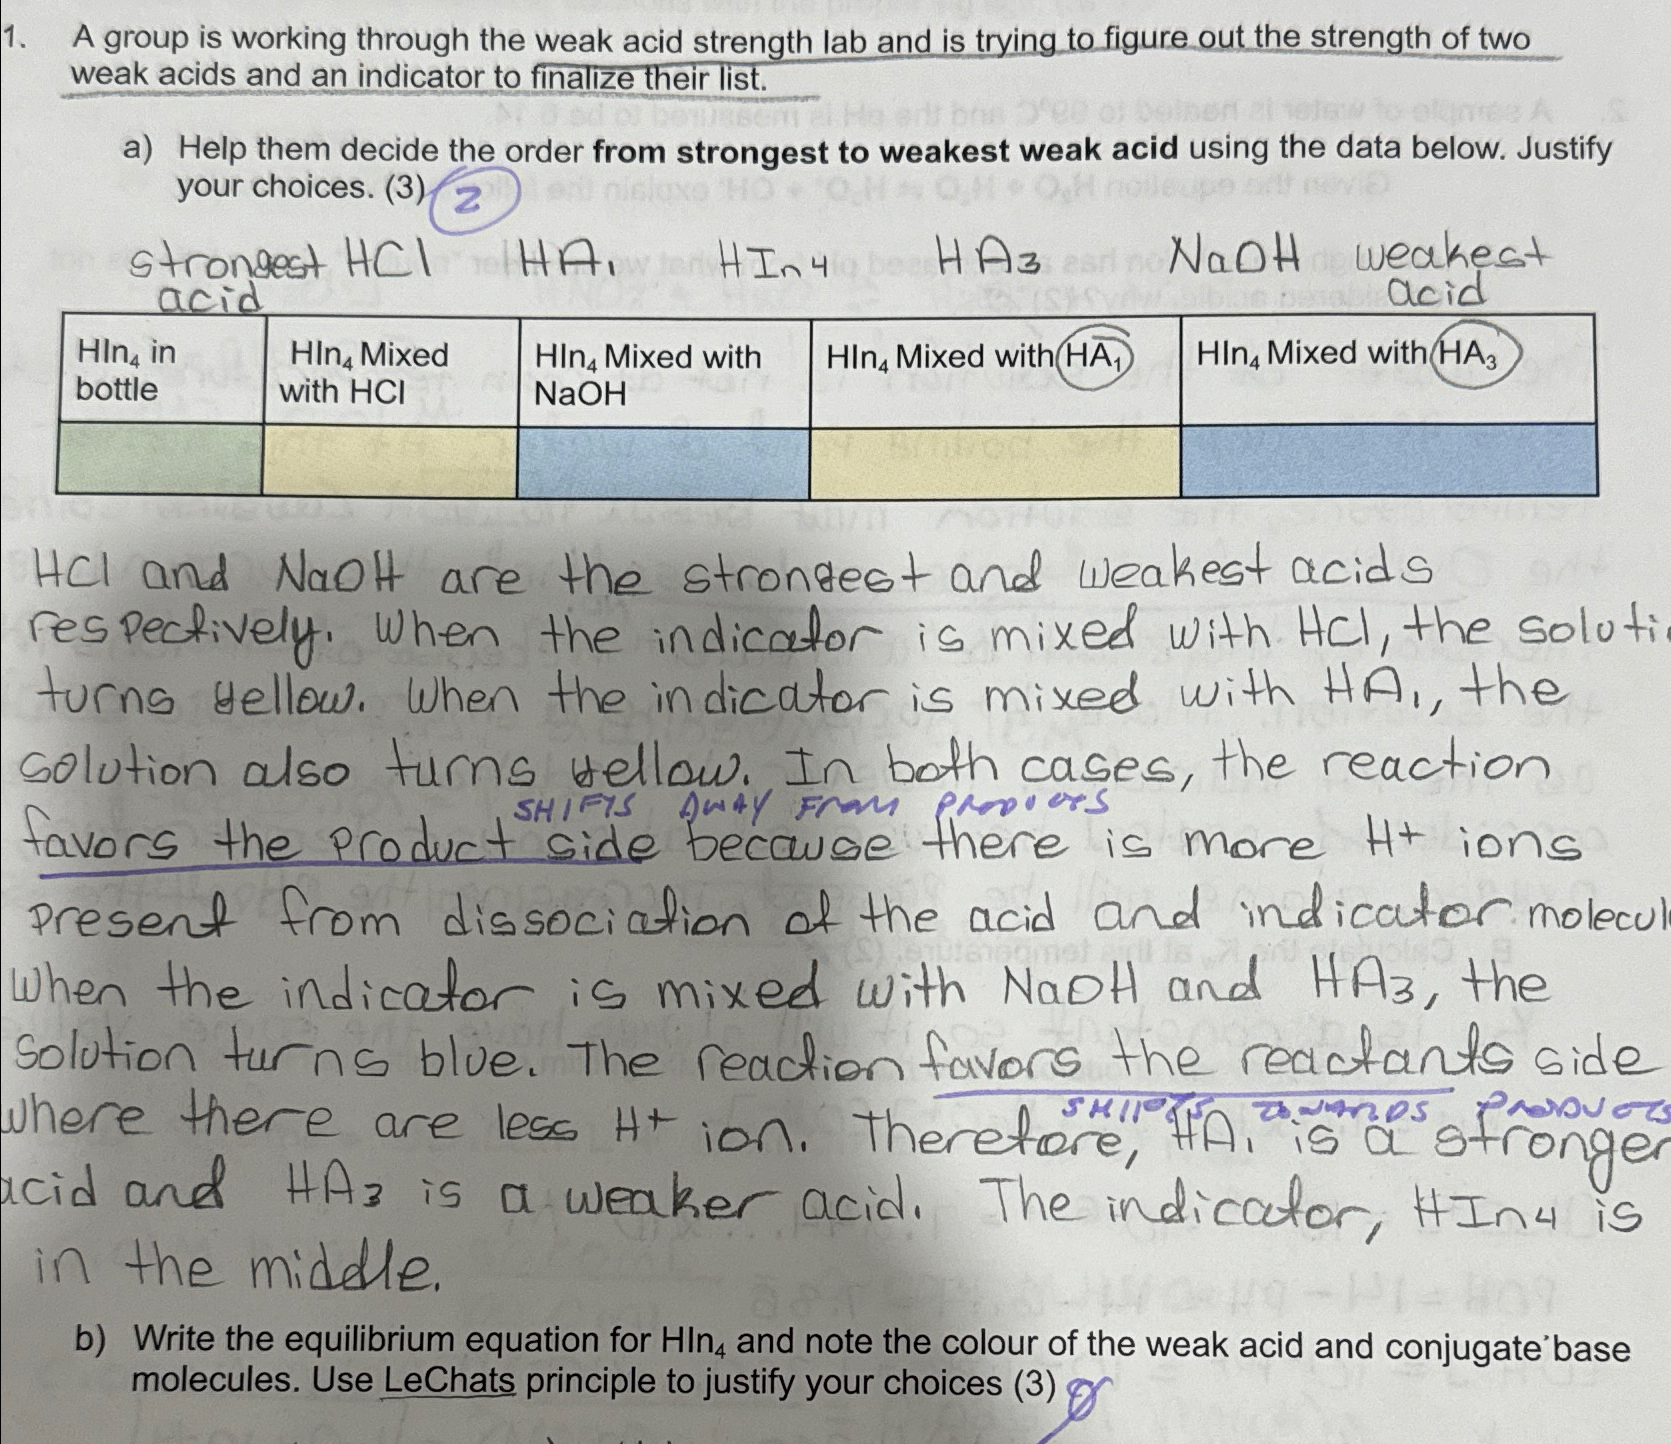 1. A group is working through the weak acid strength lab and is trying to figure out the strength of two
weak acids and an indicator to finalize their list.
a) Help them decide the order from strongest to weakest weak acid using the data below. Justify
your choices. (3) 2
strongest HCl HA₁ HIn4 HA3 NaOH weakest
acid acid
HIn₄ in bottle
HIn₄ Mixed with HCl
HIn₄ Mixed with NaOH
HIn₄ Mixed with HA₁
HIn₄ Mixed with HA₃
HCl and NaOH are the strongest and weakest acids
respectively. When the indicator is mixed with HCl, the soluti
turns yellow. When the indicator is mixed with HA₁, the
solution also turns yellow. In both cases, the reaction
SHIFTS AWAY FROM PRODUCTS
favors the product side because there is more H+ ions
present from dissociation of the acid and indicator molecul
When the indicator is mixed with NaOH and HA3, the
solution turns blue. The reaction favors the reactants side
SHIFTS TOWARDS PRODUCTS
where there are less H+ ion. Therefore, HA₁ is a stronger
acid and HA3 is a weaker acid. The indicator, HIn4 is
in the middle.
b) Write the equilibrium equation for HIn₄ and note the colour of the weak acid and conjugate base
molecules. Use LeChats principle to justify your choices (3)